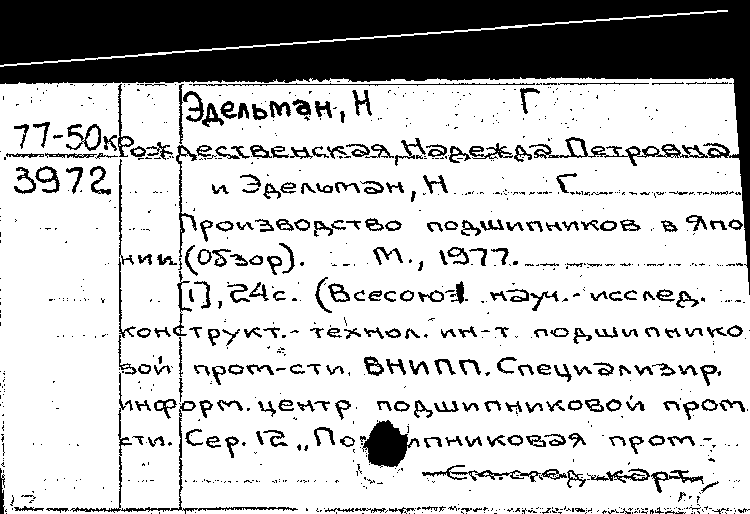 Эдельман, Н Г
77-50к Рождественская, Надежда Петровна
3972 и Эдельман, Н Г
Производство подшипников в Япо
нии (Обзор). М., 1977.
[1], 24с. (Всесоюз науч.-исслед.
конструкт.-технол. ин-т подшипнико
вой пром-сти. ВНИПП. Специализир.
информ. центр подшипниковой пром
сти. Сер. 12 „Подшипниковая пром-
См. след. карт.